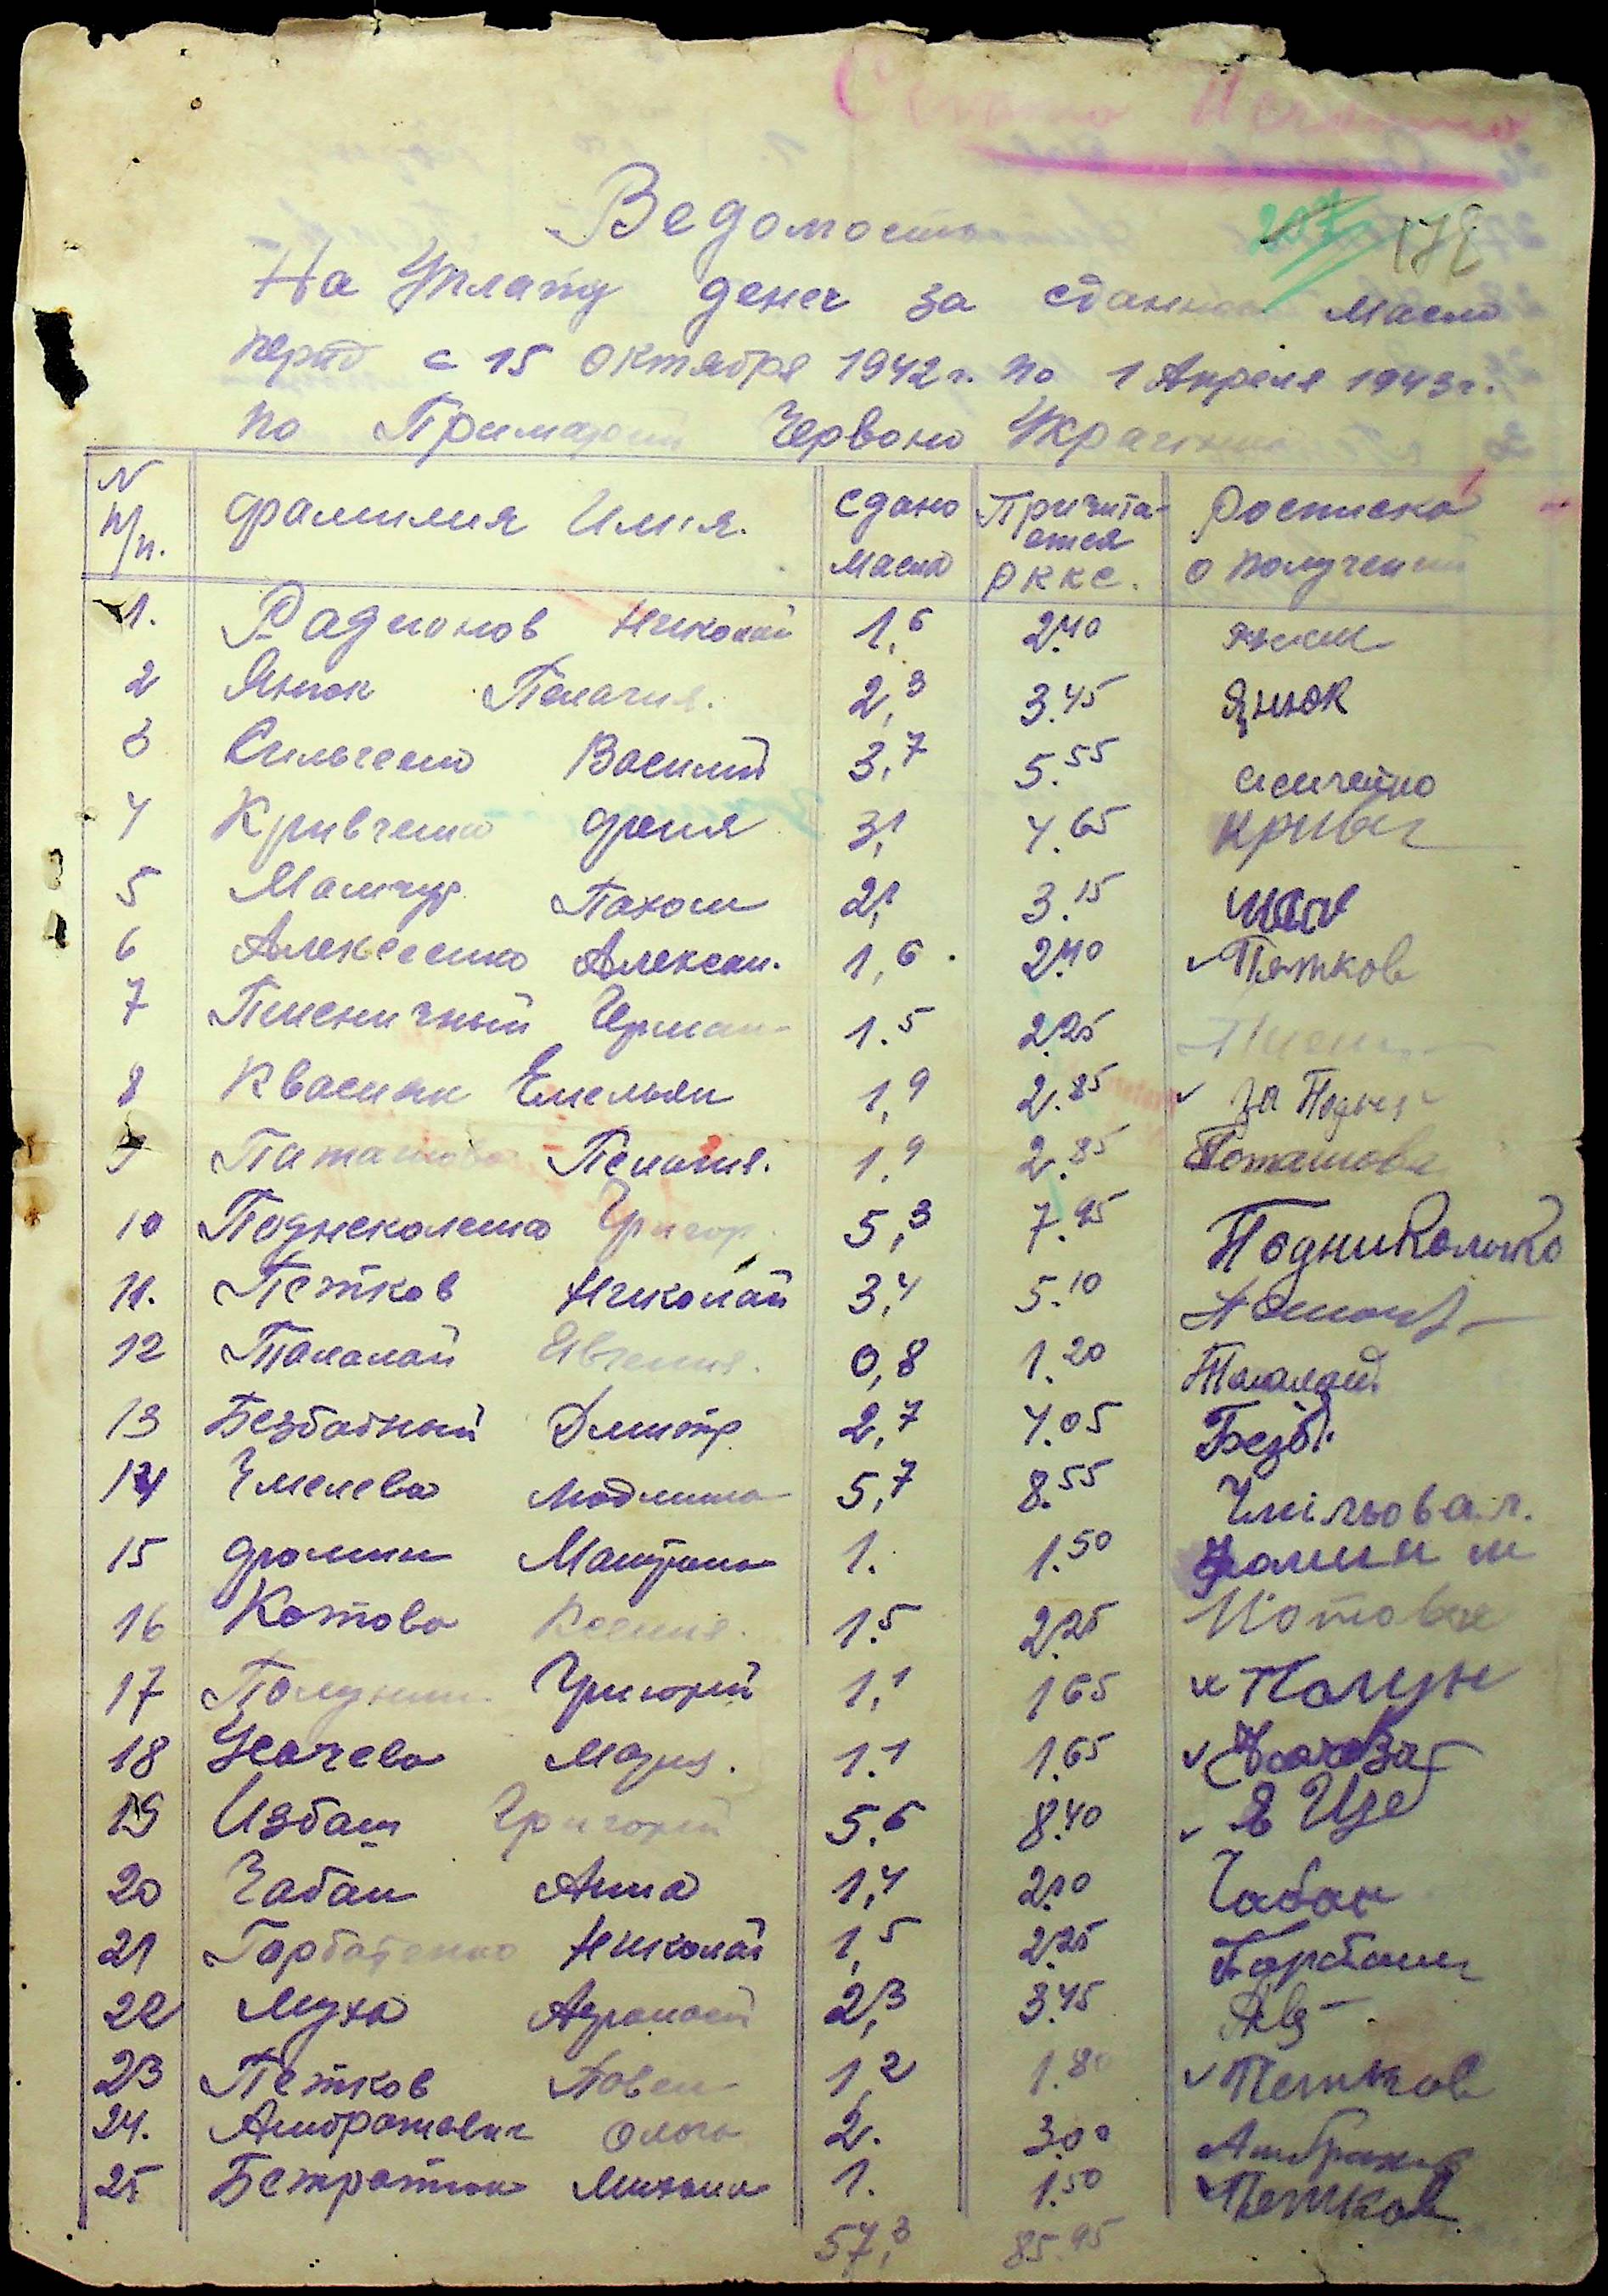 207 178
Ведомость
На Уплату денег за сданное масло
период с 15 октября 1942 г. по 1 Апреля 1943 г.
по Примарии Червоно Украинка
N п/п. фамилия Имия. Сдано масла Причитается ОККС. Росписка о получении
1. Радионов Николай 1,6 2.40
2 Янюк Пелагия. 2,3 3.45 Янюк
3 Сильченко Василий 3,7 5.55
4 Кривченко феня 3,1 4.65 Кривч
5 Мамчур Пахом 2,1 3.15
6 Алексеенко Алексан. 1,6 2.40 Пятков
7 Пшеничный Герман 1.5 2.25 Пшен
8 Квасник Емельян 1,9 2.85 за
9 Паташова Пелагия. 1,9 2.85 Поташова
10 Поднеколенко Григор. 5,3 7.95 Подниколенко
11. Петков Николай 3,4 5.10
12 Талалай Явгения. 0,8 1.20 Талалай
13 Безбабный Дмитр 2,7 4.05 Безб.
14 Чмелева Людмила 5,7 8.55 Чмільова л.
15 фомин Матрона 1. 1.50 фомин м
16 Котова Ксения. 1.5 2.25 Котова
17 Полунин. Григорий 1,1 1 65 Полун
18 Усачева Мария. 1.1 1.65
19 Избаш Григорий 5.6 8.40
20 Чабан Анна 1,4 2.10 Чабан
21 Горбатенко Николай 1,5 2.25 Горбатен
22 Муха Афанасий 2,3 3.45
23 Петков Павел 1,2 1.80 Петков
24. Амбратович Ольга 2. 3.00
25 Бетратюк Михаил 1. 1.50 Петков
57,3 85.95